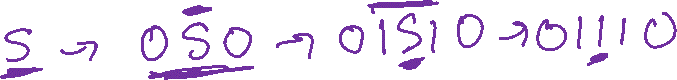 S → 0S0 → 01S10 → 01110